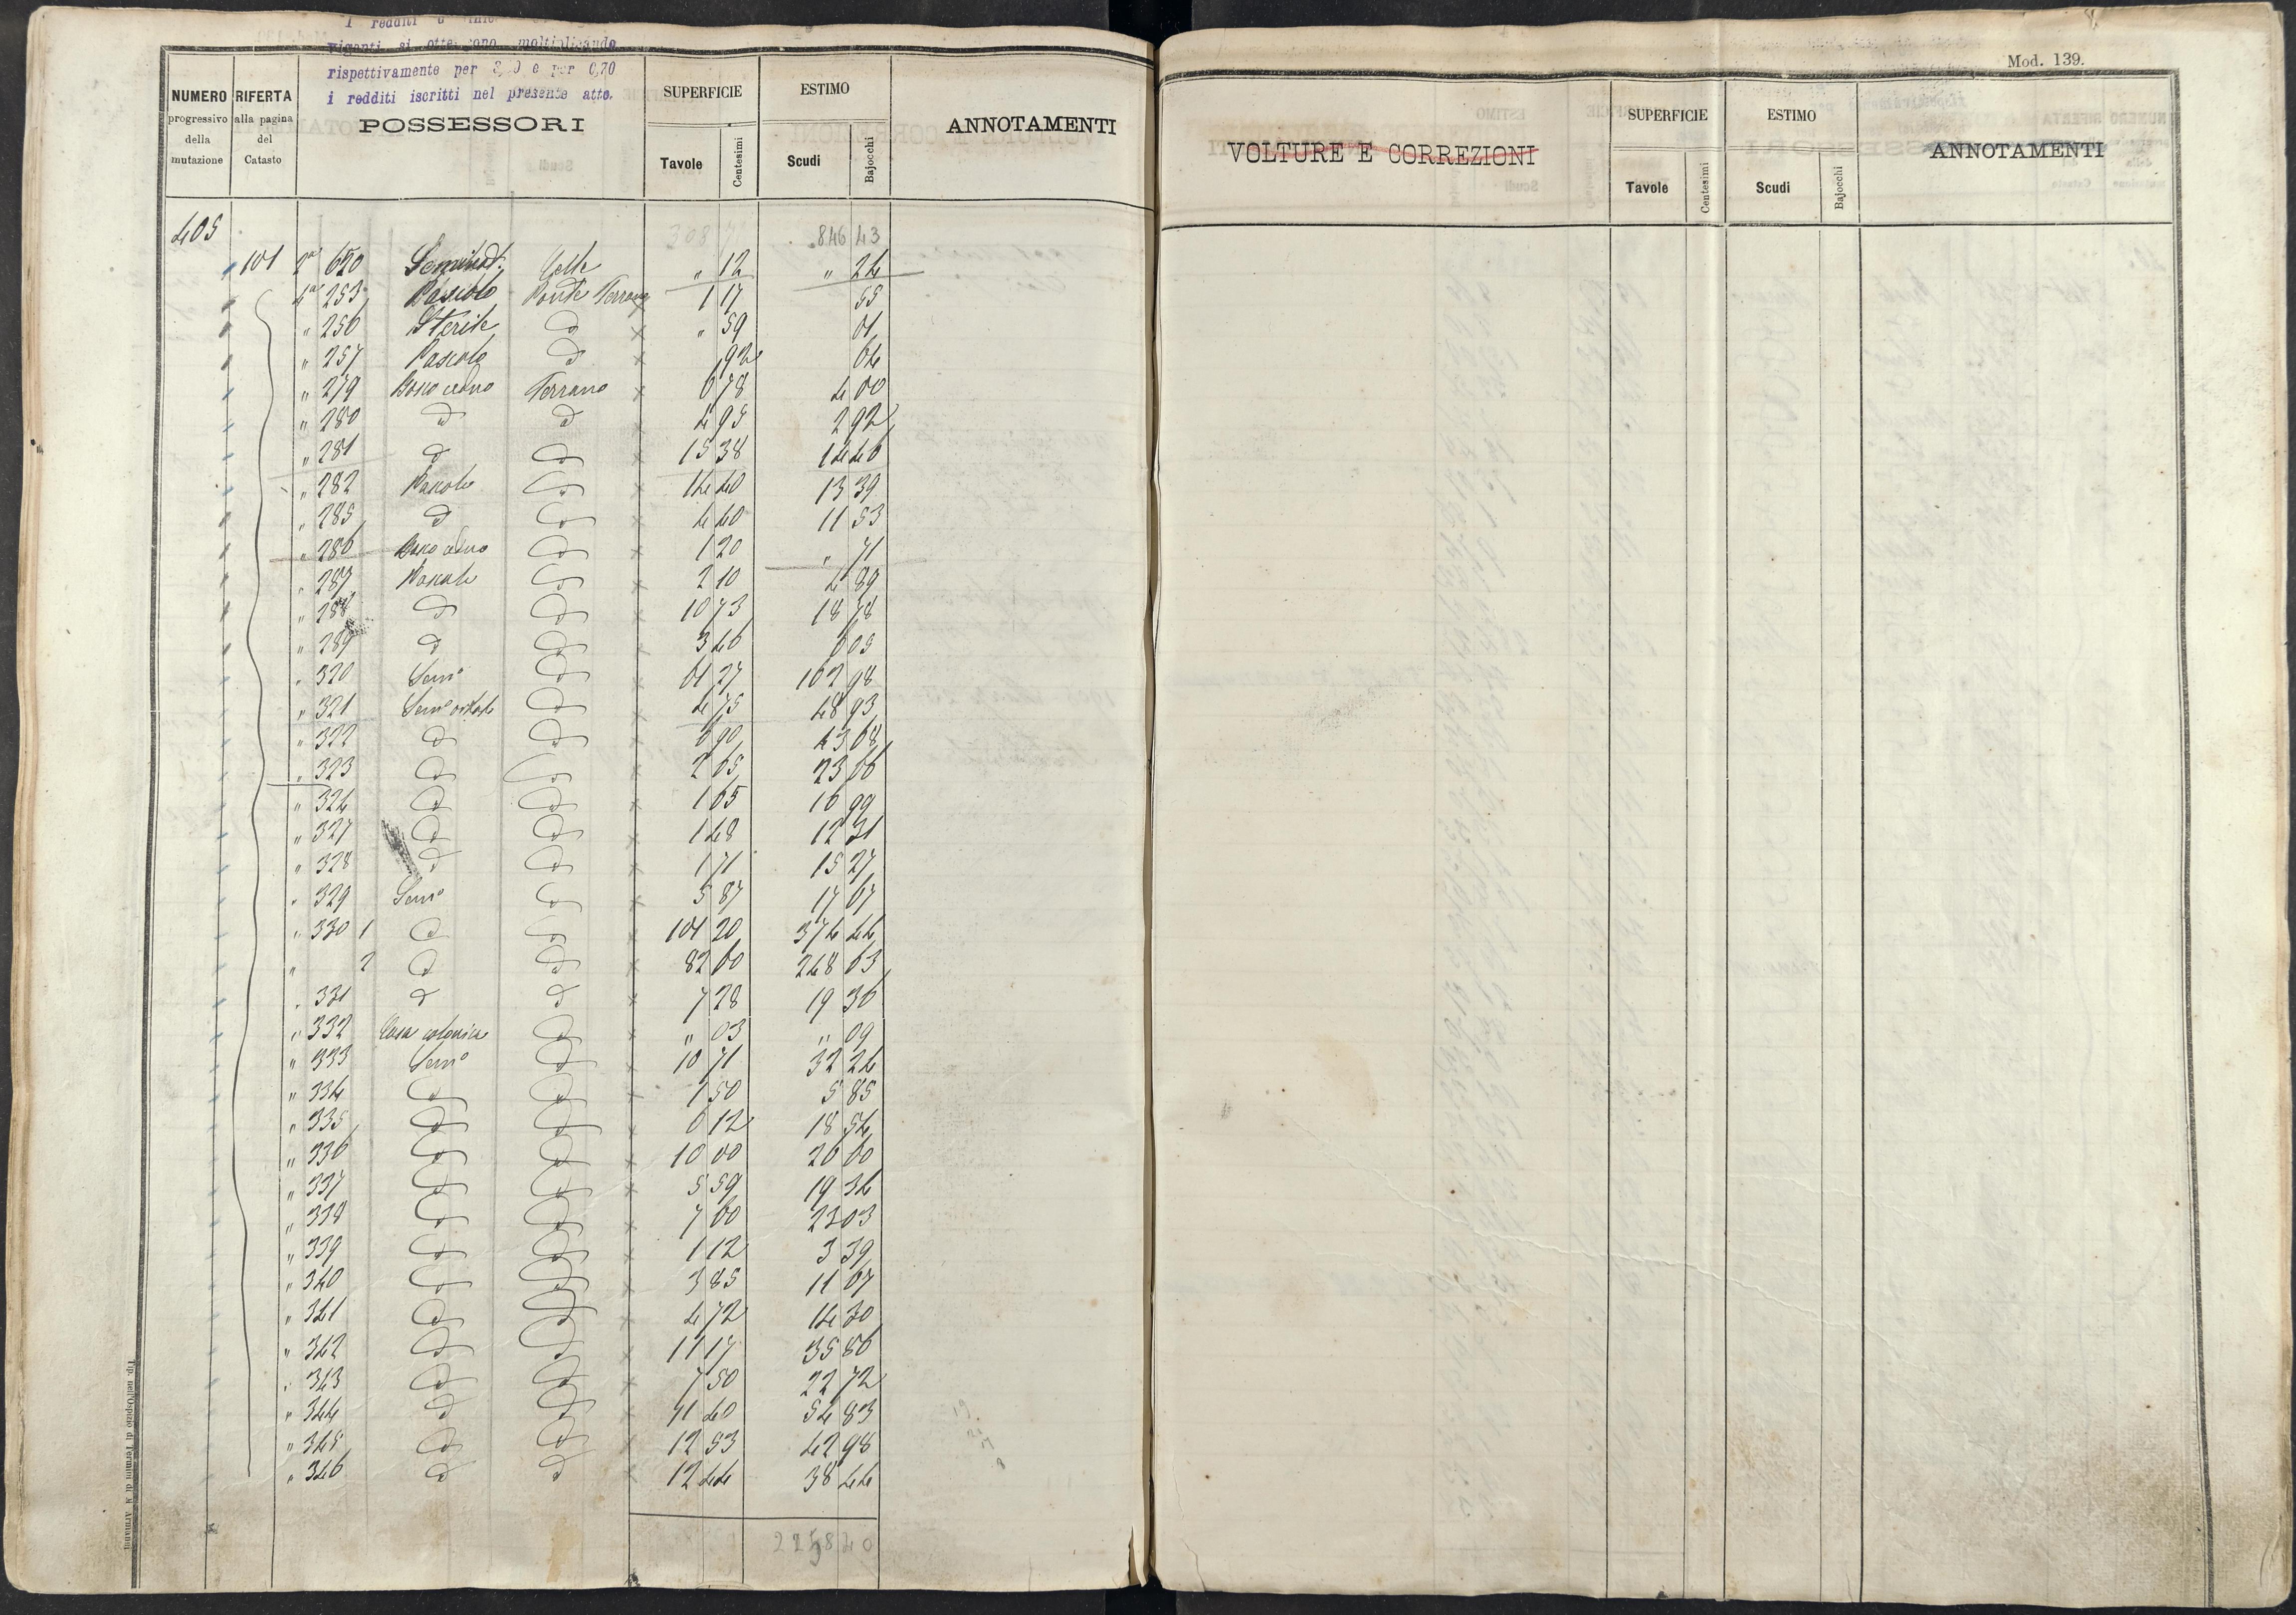 rispettivamente per e per 0,70
i redditi iscritti nel presente atto.
NUMERO progressivo della mutazione
RIFERTA alla pagina del Catasto
POSSESSORI
SUPERFICIE
Tavole Centesimi
ESTIMO
Scudi Bajocchi
ANNOTAMENTI
405 846 43
101 2a 620 Seminat. Colle " 12 " 24
4a 253 Pascolo Ponte Terrano 1 17 55
" 256 Sterile d " 59 01
" 257 Pascolo d 92 64
" 279 Bosco ceduo Terrano 6 78 4 00
" 280 d d 4 95 2 92
" 281 d d 15 38 14 46
" 282 Pascolo d 14 40 13 39
" 285 d d 4 40 11 53
" 286 Bosco ceduo d 1 20 " 71
" 287 Pascolo d 2 10 4 89
" 288 d d 10 73 18 78
" 289 d d 3 46 6 05
" 320 Semo d 61 27 162 98
" 321 Semo d 4 75 48 93
" 322 d d 6 90 43 68
" 323 d d 2 65 23 06
" 324 d d 1 65 16 99
" 327 d d 1 48 12 31
" 328 d d 1 71 15 27
" 329 Semo d 5 87 17 67
" 330 1 d d 101 20 374 44
" 2 d d 82 60 248 63
" 331 d d 7 28 19 36
" 332 Casa colonica d " 03 " 09
" 333 Semo d 10 71 32 24
" 334 d d 1 50 5 85
" 335 d d 6 12 18 54
" 336 d d 10 00 26 60
" 337 d d 5 59 19 34
" 338 d d 7 60 23 03
" 339 d d 1 12 3 39
" 340 d d 3 85 11 67
" 341 d d 4 72 14 30
" 342 d d 11 17 35 86
" 343 d d 7 50 22 72
" 344 d d 11 40 54 83
" 345 d d 12 53 42 98
" 346 d d 12 44 38 44
Tip. nell'Ospizio di Termini di N Armanni
Mod. 139.
VOLTURE E CORREZIONI
SUPERFICIE
Tavole Centesimi
ESTIMO
Scudi Bajocchi
ANNOTAMENTI